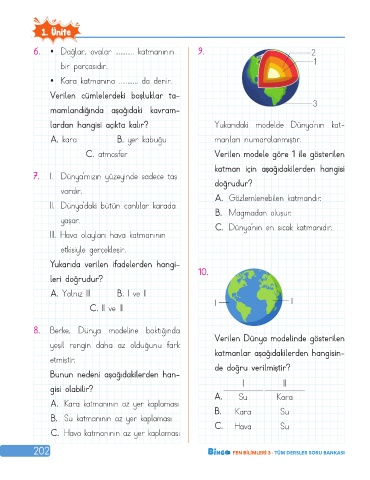 1. Ünite
6. • Dağlar, ovalar .......... katmanının
bir parçasıdır.
• Kara katmanına .......... da denir.
Verilen cümlelerdeki boşluklar ta-
mamlandığında aşağıdaki kavram-
lardan hangisi açıkta kalır?
A. kara B. yer kabuğu
C. atmosfer
7. I. Dünya'mızın yüzeyinde sadece taş
vardır.
II. Dünya'daki bütün canlılar karada
yaşar.
III. Hava olayları hava katmanının
etkisiyle gerçekleşir.
Yukarıda verilen ifadelerden hangi-
leri doğrudur?
A. Yalnız III B. I ve II
C. II ve III
8. Berke, Dünya modeline baktığında
yeşil rengin daha az olduğunu fark
etmiştir.
Bunun nedeni aşağıdakilerden han-
gisi olabilir?
A. Kara katmanının az yer kaplaması
B. Su katmanının az yer kaplaması
C. Hava katmanının az yer kaplaması
9.
2
1
3
Yukarıdaki modelde Dünya'nın kat-
manları numaralanmıştır.
Verilen modele göre 1 ile gösterilen
katman için aşağıdakilerden hangisi
doğrudur?
A. Gözlemlenebilen katmandır.
B. Magmadan oluşur.
C. Dünya'nın en sıcak katmanıdır.
10.
I II
Verilen Dünya modelinde gösterilen
katmanlar aşağıdakilerden hangisin-
de doğru verilmiştir?
I II
A. Su Kara
B. Kara Su
C. Hava Su
202
BİNGO FEN BİLİMLERİ 3 - TÜM DERSLER SORU BANKASI